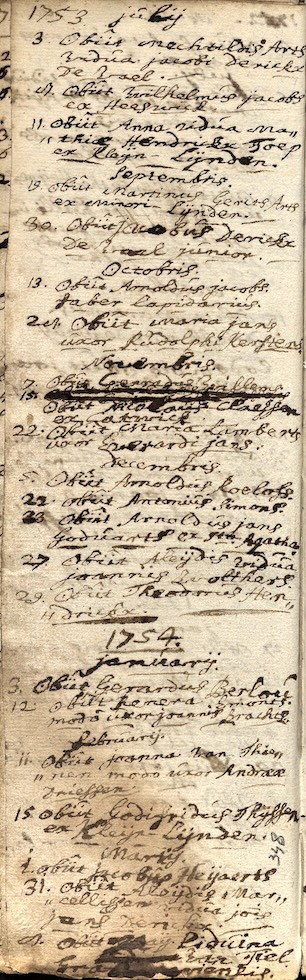 1753 julij
3 Obiit Mechtildis Arts
vidua jacobi Dericks
De Brael.
Obiit Wilhelmus jacobs
ex Heeswick
11. Obiit Anna vidua Ma„
„thiæ Hendrickx
ex Kleyn Lijnden.
Septembris
Obiit Martinus Gerits Arts
ex Minori Lijnden.
30. Obiit jacobus Derickx
De Brael junior.
Octobris.
13. Obiit Arnoldus jacobs
Faber Lapidarius.
Obiit Maria jans
uxor Rudolphi Kersten
Novembris.
7. Obiit Gerardus Willems
15.
Obiit Nicolaus Claessen
ex
22. Obiit Maria Lambers
uxor Everardi jans.
Decembris
5. Obiit Arnoldus Roelofs.
22 Obiit Antonius Simons.
23 Obiit Arnoldus jans
Goduarts ex Sta Agatha
27 Obiit Aleydis vidua
joannis Wolthers.
29. Obiit Theodorus Hen„
„drickx.
1754.
januarij.
3. Obiit Gerardus
12 Obiit
modo uxor joannis
februarij.
11. Obiit joanna van Thie„
„nen modo uxor Andreæ
Driessen
15 Obiit Godefridus Thyssen
ex Kleyn Lijnden.
348
Martij
1. Obiit jacobus Heijaerts
31. Obiit Aleijdis Mar„
„cellissen vidua jois
jans
Obiit Liduina
van Tiel